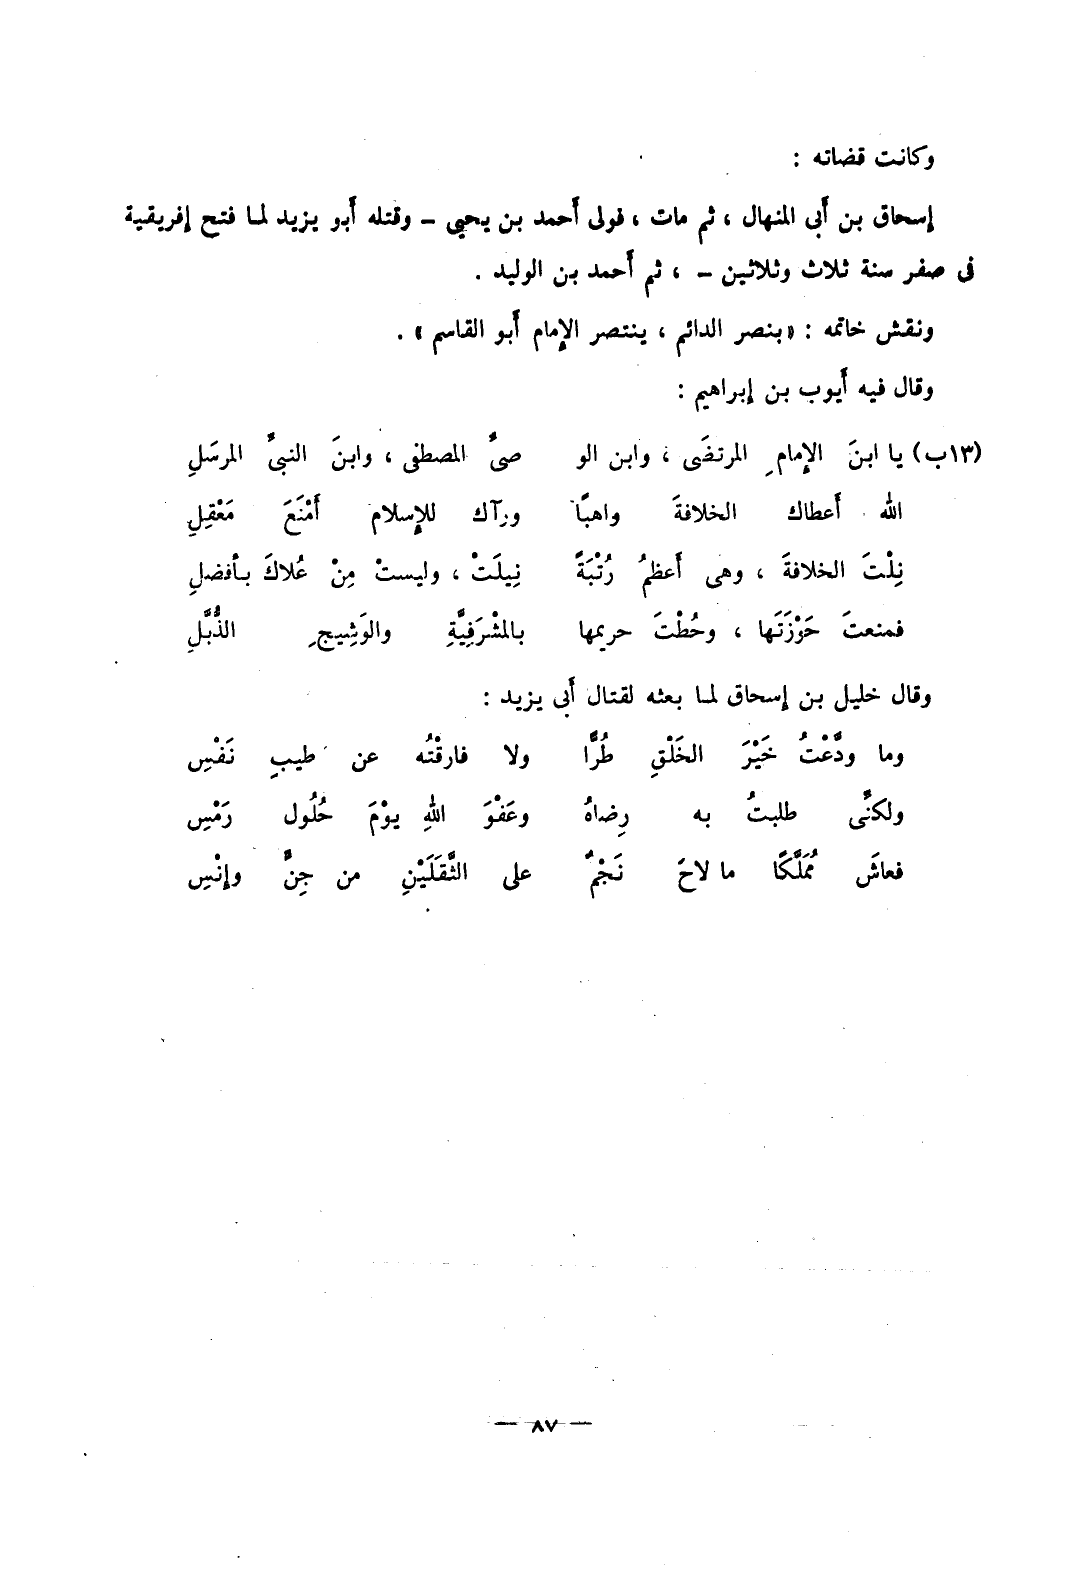 وكانت قضاته :
إسحاق بن أبى المنهال ، ثم مات ، فولى أحمد بن يحيى – وقتله أبو يزيد لما فتح إفريقية
فى صفر سنة ثلاث وثلاثين – ، ثم أحمد بن الوليد .
ونقش خاتمه : «بنصر الدائم ، ينتصر الإمام أبو القاسم» .
وقال فيه أيوب بن إبراهيم :
(١٣ب) يا ابنَ الإمامِ المرتضَى ، وابن الو صىِّ المصطفى ، وابنَ النبىِّ المرسَلِ
الله أعطاك الخلافةَ واهبًا ورآك للإسلام أَمْنَعَ مَعْقِلِ
نِلْتَ الخلافةَ ، وهى أَعظمُ رُتْبَةً نِيلَتْ ، وليستْ مِنْ عُلاكَ بأَفضلِ
فمنعتَ حَوْزَتَها ، وحُطْتَ حريمها بالمشْرَفِيَّةِ والوَشِيجِ الذُّبَّلِ
وقال خليل بن إسحاق لما بعثه لقتال أبى يزيد :
وما ودَّعْتُ خَيْرَ الخَلْقِ طُرًّا ولا فارقْتُه عن طيبِ نَفْسِ
ولكنِّى طلبتُ به رِضاهُ وعَفْوَ اللهِ يوْمَ حُلُول رَمْسِ
فعاشَ مُمَلَّكًا ما لاحَ نَجْمٌ على الثَّقَلَيْنِ من جِنٍّ وإنْسِ
— ٨٧ —